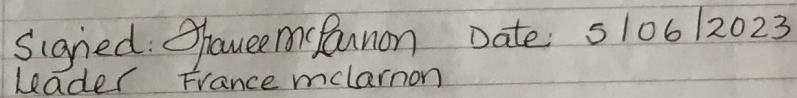 Signed: France mclarnon Date: 5/06/2023
Leader France mclarnon